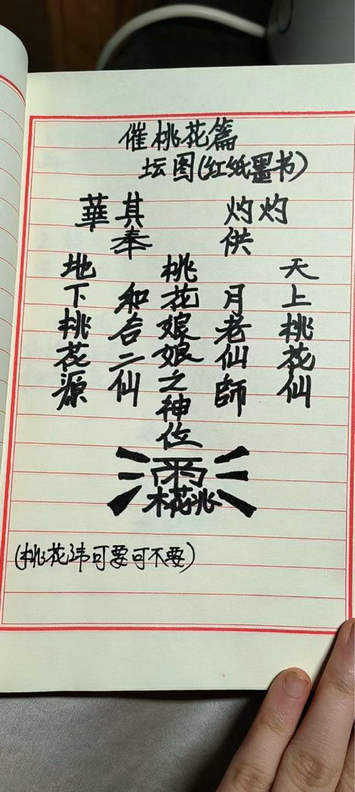 催桃花篇
坛图(红纸墨书)
灼灼其華
供奉
天上桃花仙
月老仙師
桃花娘娘之神位
和合二仙
地下桃花源
雨
木花兆
(桃花讳可要可不要)